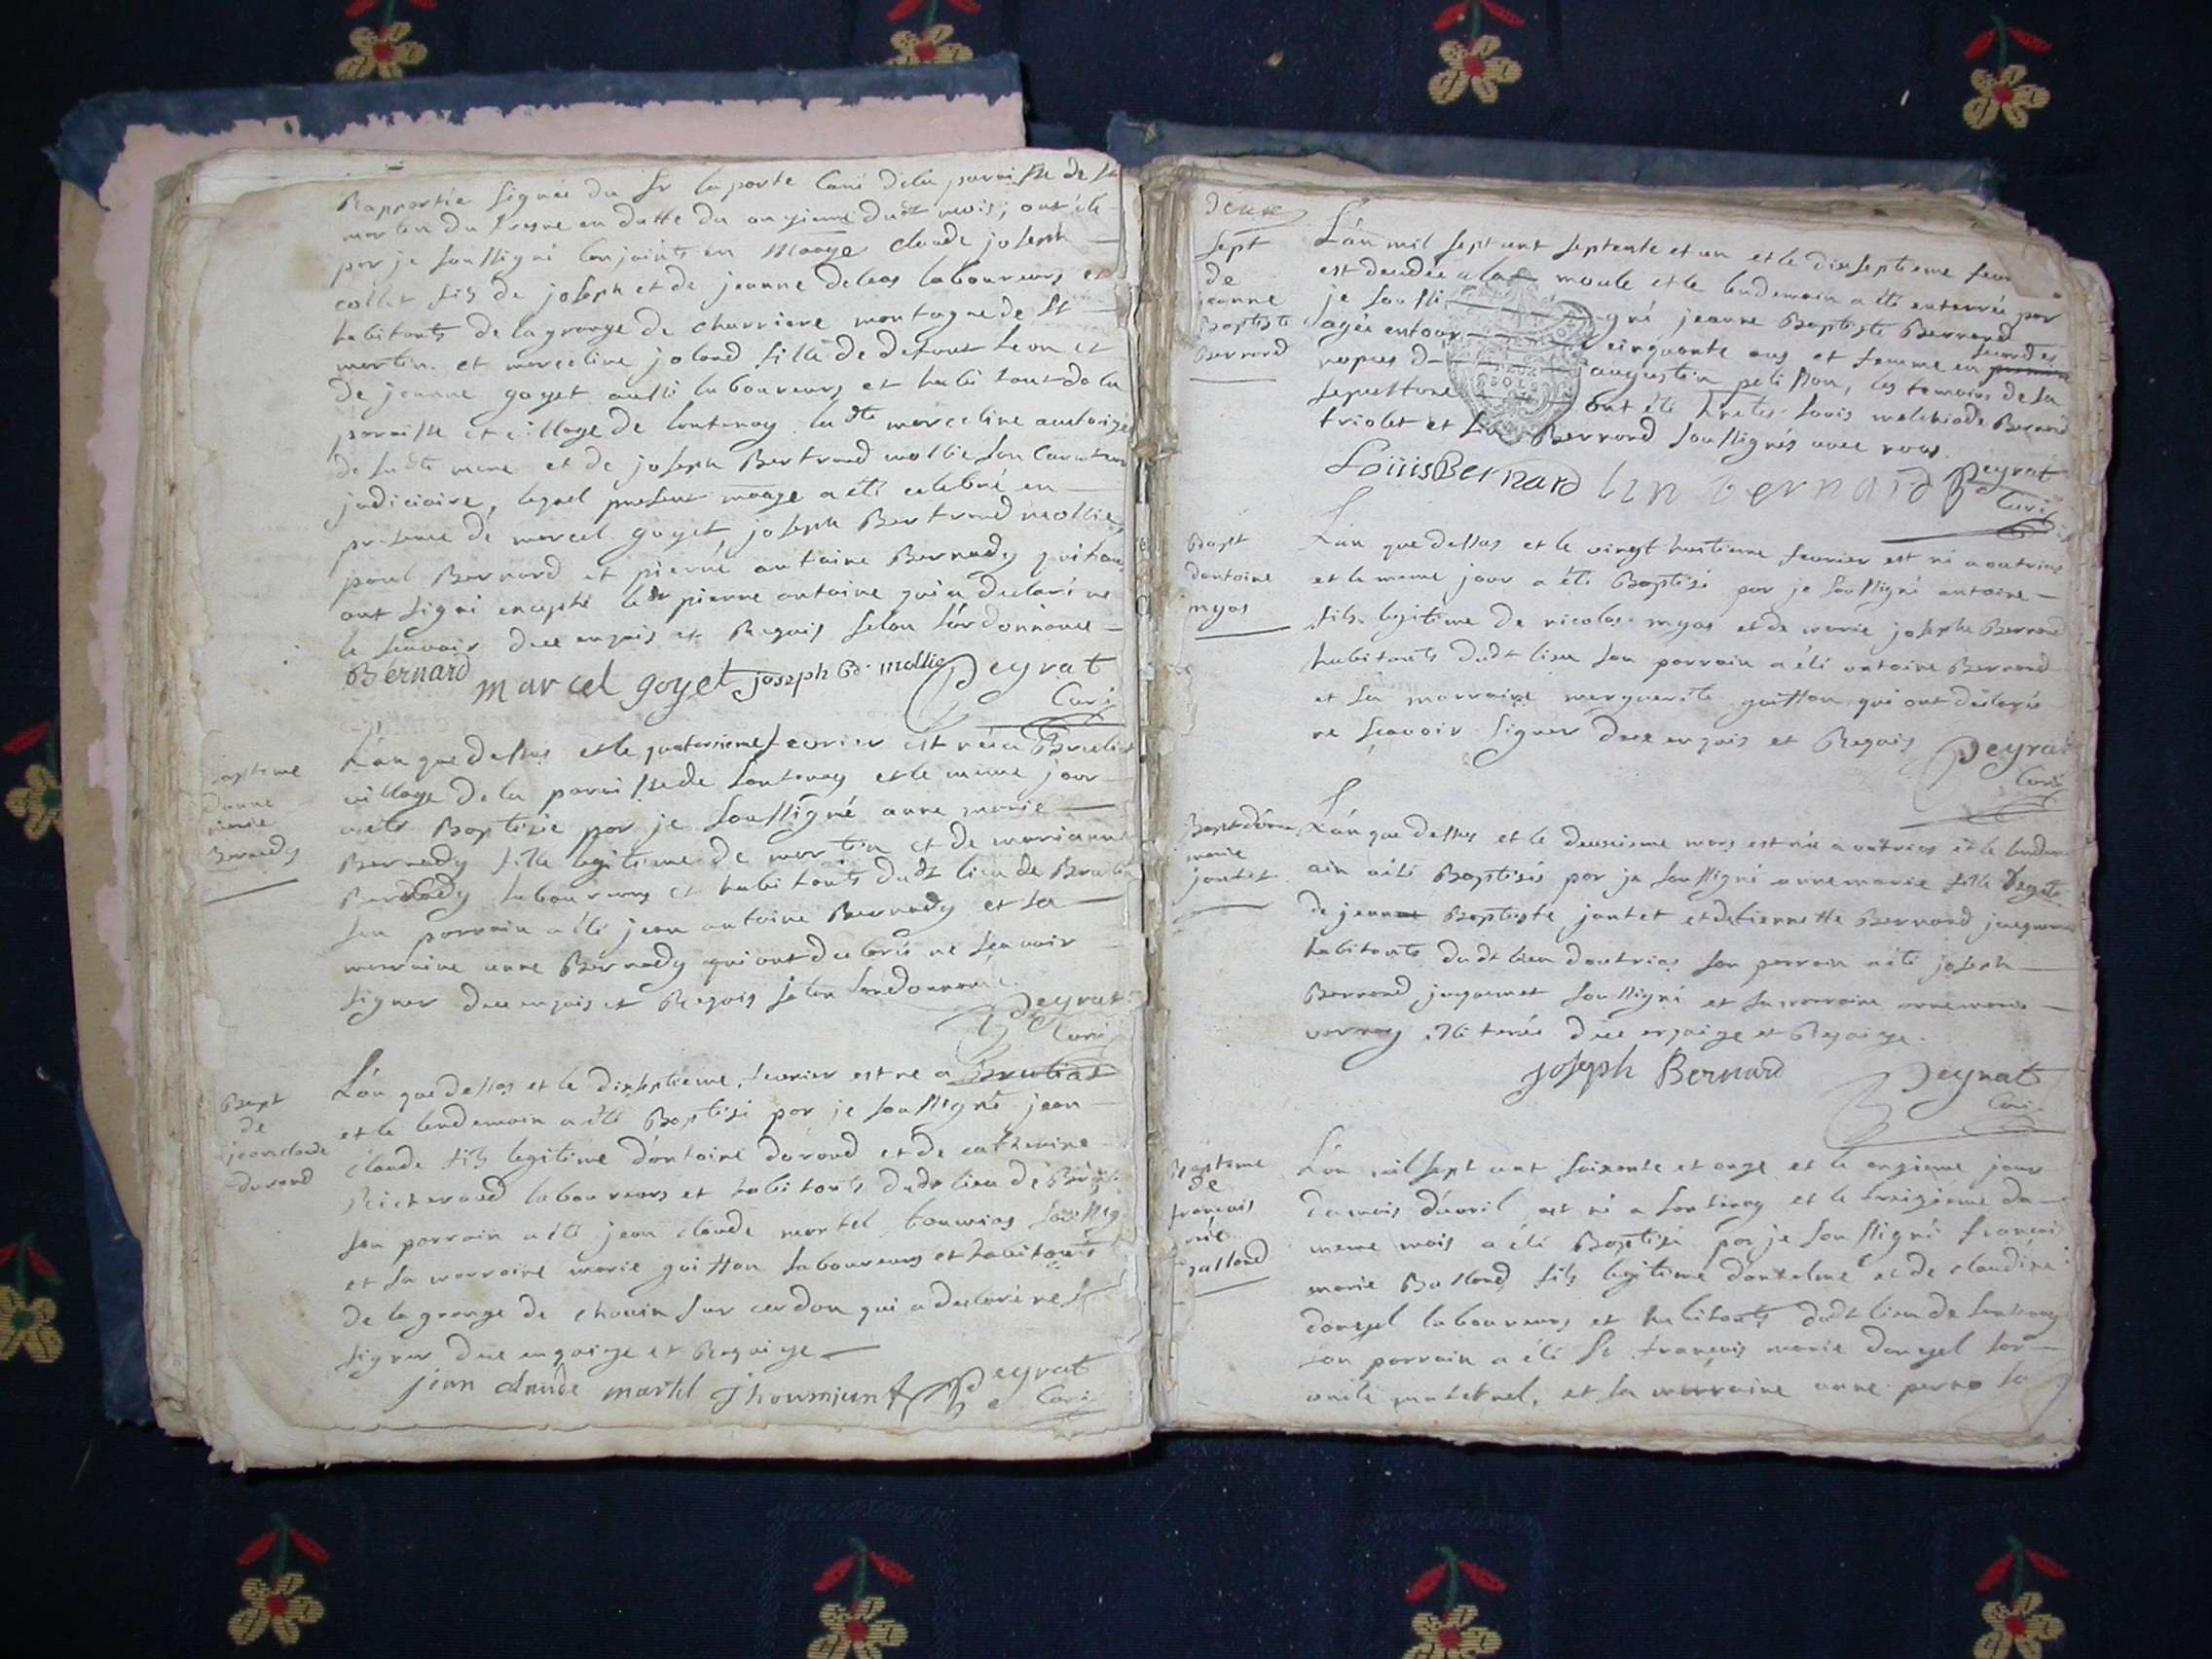 Rapportée signée du Sr laporte Curé dela paroisse de St
martin du fresne en datte du onzieme dudt mois; ont été
par je soussigné Conjoints en Maage claude joseph
collet fils de joseph et de jeanne deleas laboureurs et
habitants de la grange de charriere montagne de St
martin. et marceline joland fille de defunt leon et
de jeanne goyet aussi laboureurs et habitants de la
paroisse et village de lantenay ladte marceline authorizée
de sadte mere et de joseph Bertrand mollie son Curateur
judiciaire, lequel present maage a été celebré en
presence de marcel goyet, joseph Bertrand mollie,
paul Bernard et pierre antoine Bernady qui tous
ont signé excepté le sr pierre antoine qui a declaré ne
le scavoir duee enquis et Requis selon l'ordonnance
Bernard marcel goyet joseph Bd. mollie Peyrat
Curé
Bapteme
danne
marie
Bernady
L'an que dessus et le quatorzieme fevrier est née a Brulias
village de la paroisse de lantenay et le meme jour
a eté Baptisée par je soussigné anne marie
Bernady fille legitime de martin et de marianne
Bernady laboureurs et habitants dudt lieu de Brulia
son parrain a été jean antoine Bernady et sa
marraine anne Bernady qui ont declaré ne scavoir
signer duee enquis et Requis selon lordonnance.
Peyrat
Curé
Bapt
de
jean claude
durand
L'an que dessus et le dixseptieme fevrier est né a Brulias
et le lendemain a été Baptisé par je soussigné jean
claude fils legitime d'antoine durand et de catherine
Richerand laboureurs et habitants dudt lieu de
son parrain a été jean claude martel
et sa marraine marie guitton laboureurs et habitants
de la grange de chouin sur cerdon qui a declaré ne s
signer duee enquise et Requise
jean claude martel Peyrat
Curé
deux
Sept
de
jeanne
Baptiste
Bernard
L'an mil sept cent septente et un et le dixseptieme fevr
est decedée a la moule et le lendemain a été enterrée par
je soussigné jeanne Baptiste Bernard
agée environ cinquante ans et femme en premier secondes
nopces d augustin pelisson, les temoins de sa
sepulture ont été Louis melchiade Bernard
triolet et Bernard soussignés avec nous.
Loüis Bernard Bernard Peyrat
Curé
Bapt
dantoine
myas
L'an que dessus et le vingt huitieme fevrier est né a outrias
et le meme jour a été Baptisé par je soussigné antoine
fils legitime de nicolas myas et de marie josephe Bernard
habitants dudt lieu son parrain a été antoine Bernard
et sa marraine marguerite guitton qui ont declaré
ne scavoir signer duee enquis et Requis Peyrat
Curé
Bapt dānne
marie
jantet
L'an que dessus et le deuxieme mars est née a outrias et le lendem
ain a été Baptisée par je soussigné anne marie fille legit
de jean Baptiste jantet et detiennette Bernard jacquemet
habitants dudt lieu doutrias son parrain a été joseph
Bernard jacquemet soussigné et sa marraine anne marie
vernay illiterée duee enquise et Requise.
joseph Bernard Peyrat
Curé
Bapteme
de
francois
mie
balland
L'an mil sept cent soixante et onze et le onzieme jour
du mois d'avril est né a lantenay et le treizieme du
meme mois a été Baptisé par je soussigné francois
marie Balland, fils legitime danthelme et de claudine
dangel laboureurs et habitants dudt lieu de lantenay
son parrain a été Sr francois marie dangel son
oncle maternel, et sa marraine anne perno sa